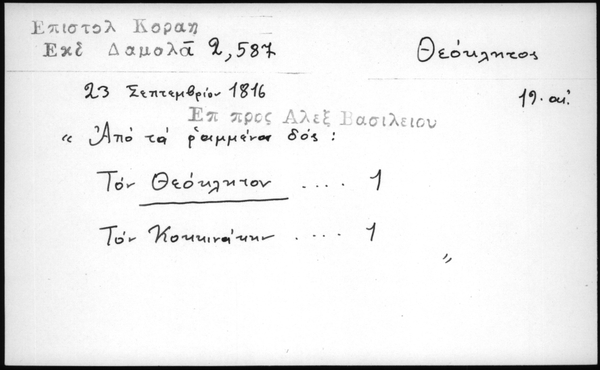 Επιστολ Κοραη
Εκδ Δαμαλᾶ 2,587
Θεόκλητος
23 Σεπτεμβρίου 1816
19. αἰ.
Επ προς Αλεξ Βασιλειου
“ Ἀπό τά ῥαμμένα δός :
Τόν Θεόκλητον .... 1
Τόν Κοκκινάκην .... 1
”